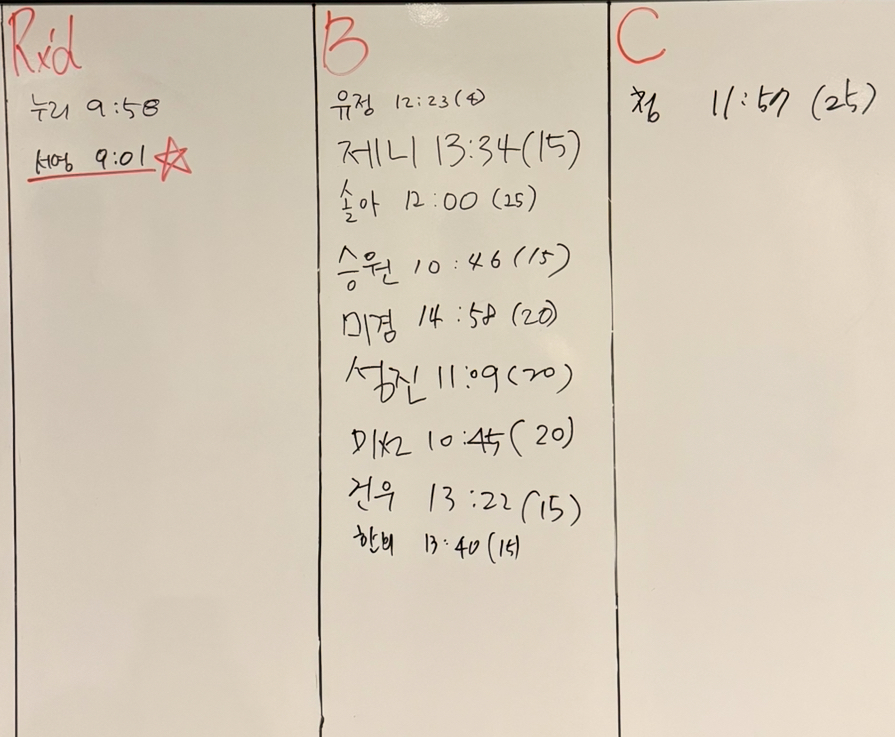 Rx'd
누리 9:58
서영 9:01
B
유정 12:23
제니 13:34(15)
솔아 12:00 (25)
승원 10:46 (15)
미경 14:58 (20)
성진 11:09 (20)
10:45 (20)
건우 13:22 (15)
한비 13:40 (15)
C
11:57 (25)